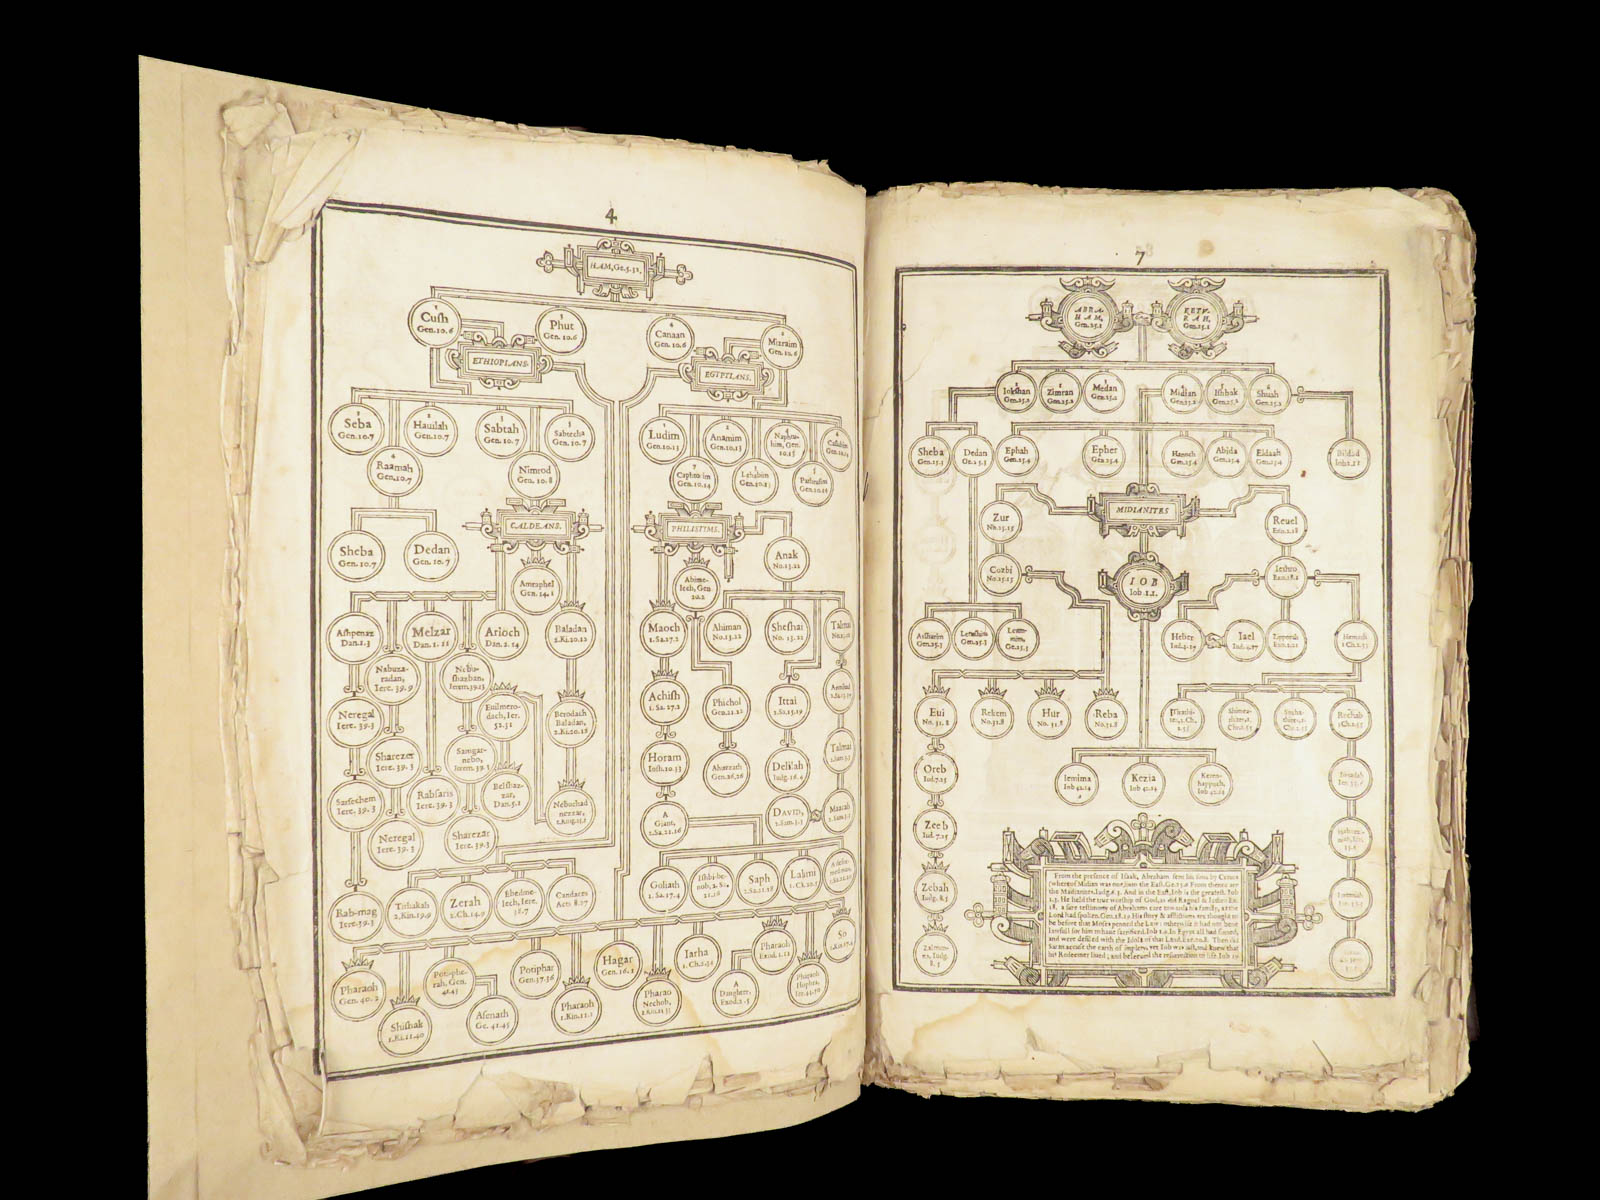 4
HAM, Ge.5.32.
Cuſh
Gen.10.6
Phut
Gen.10.6
Canaan
Gen.10.6
Mizraim
Gen.10.6
ETHIOPIANS.
EGYPTIANS.
Seba
Gen.10.7
Hauilah
Gen.10.7
Sabtah
Gen.10.7
Sabtecha
Gen.10.7
Raamah
Gen.10.7
Nimrod
Gen.10.8
Ludim
Gen.10.13
Anamim
Gen.10.13
Naphtu-
him, Gen.
10.13
Caſluhim
Gen.10.14
Caphtorim
Gen.10.14
Lehabim
Gen.10.13
Pathruſim
Gen.10.14
CALDEANS.
PHILISTIMS.
Sheba
Gen.10.7
Dedan
Gen.10.7
Amraphel
Gen.14.1
Abime-
lech, Gen.
20.2
Anak
No.13.22
Aſhpenaz
Dan.1.3
Melzar
Dan.1.11
Arioch
Dan.2.14
Baladan
2.Ki.20.12
Maoch
1.Sa.27.2
Ahiman
No.13.22
Sheſhai
No.13.22
Talmai
Nabuza-
radan,
Iere.39.9
Nebu-
ſhazban,
Ierem.39.13
Neregal
Iere.39.3
Euilmero-
dach, Ier.
52.31
Berodach
Baladan,
2.Ki.20.12
Achiſh
1.Sa.27.2
Phichol
Gen.21.22
Ittai
2.Sa.15.19
Sharezer
Iere.39.3
Samgar-
nebo,
Ierem.39.3
Horam
Ioſh.10.33
Ahuzzath
Gen.26.26
Delilah
Iudg.16.4
Talmai
Sarſechem
Iere.39.3
Rabſaris
Iere.39.3
Belſhaz-
zar,
Dan.5.1
Nebuchad
nezzar,
A
Giant,
2.Sa.21.16
DAVID,
2.Sam.3.3
Maacah
Neregal
Iere.39.3
Sharezar
Iere.39.3
Goliath
1.Sa.17.4
Iſhbi-be-
nob, 2.Sa.
21.16
Saph
2.Sa.21.18
Lahmi
1.Ch.20.5
Rab-mag
Iere.39.3
Tirhakah
2.Kin.19.9
Zerah
2.Ch.14.9
Ebedme-
lech, Iere.
38.7
Candaces
Acts 8.27
Pharaoh
Gen.40.2
Potiphe-
rah, Gen.
41.45
Potiphar
Gen.37.36
Hagar
Gen.16.1
Iarha
1.Ch.2.34
Pharaoh
Exod.1.11
So
2.Kin.17.4
Shiſhak
1.Ki.11.40
Aſenath
Ge.41.45
Pharaoh
1.Kin.11.1
Pharao
Nechoh,
A
Daughter,
Exod.2.5
Pharaoh
Hophra,
Ier.44.30
7
ABRA-
HAM,
Gen.25.1
KETV-
RAH,
Gen.25.1
Iokſhan
Gen.25.2
Zimran
Gen.25.2
Medan
Gen.25.2
Midian
Gen.25.2
Iſhbak
Gen.25.2
Shuah
Gen.25.2
Sheba
Gen.25.3
Dedan
Ge.25.3
Ephah
Gen.25.4
Epher
Gen.25.4
Hanoch
Gen.25.4
Abida
Gen.25.4
Eldaah
Gen.25.4
Bildad
Iob 2.11
MIDIANITES
Zur
Nu.25.15
Reuel
Exo.2.18
Cozbi
Nu.25.15
IOB
Iob.1.1.
Iethro
Exo.18.1
Aſſhurim
Gen.25.3
Letuſhim
Gen.25.3
Leum-
mim,
Ge.25.3
Heber
Iud.4.17
Iael
Iud.4.17
Zipporah
Exo.2.21
1 Ch.2.55
Eui
No.31.8
Rekem
No.31.8
Hur
No.31.8
Reba
No.31.8
Rechab
1 Ch.2.55
Oreb
Iud.7.25
Iemima
Iob 42.14
Kezia
Iob 42.14
Keren-
happuch,
Iob 42.14
Zeeb
Iud.7.25
Zebah
Iudg.8.5
Zalmun-
na, Iudg.
8.5
From the preſence of Iſaak, Abraham ſent his ſons by Cetura
(whereof Midian was one) into the Eaſt, Ge.25.6 From thence are
the Madianites, Iudg.6.3. And in the Eaſt, Iob is the greateſt. Iob
1.3. He held the true worſhip of God, as did Raguel & Iethro Ex.
18. a ſure teſtimony of Abrahams care towards his family, as the
Lord had ſpoken, Gen.18.19. His ſtory & afflictions are thought to
be before that Moſes penned the Law: otherwiſe it had not bene
lawfull for him to haue ſacrificed. Iob 1.5. In Egypt all had ſinned,
and were defiled with the Idols of that Land, Eze.20.8. Then did
Satan accuſe the earth of impiety, yet Iob was iuſt, and knew that
his Redeemer liued; and beleeued the reſurrection to life. Iob 19